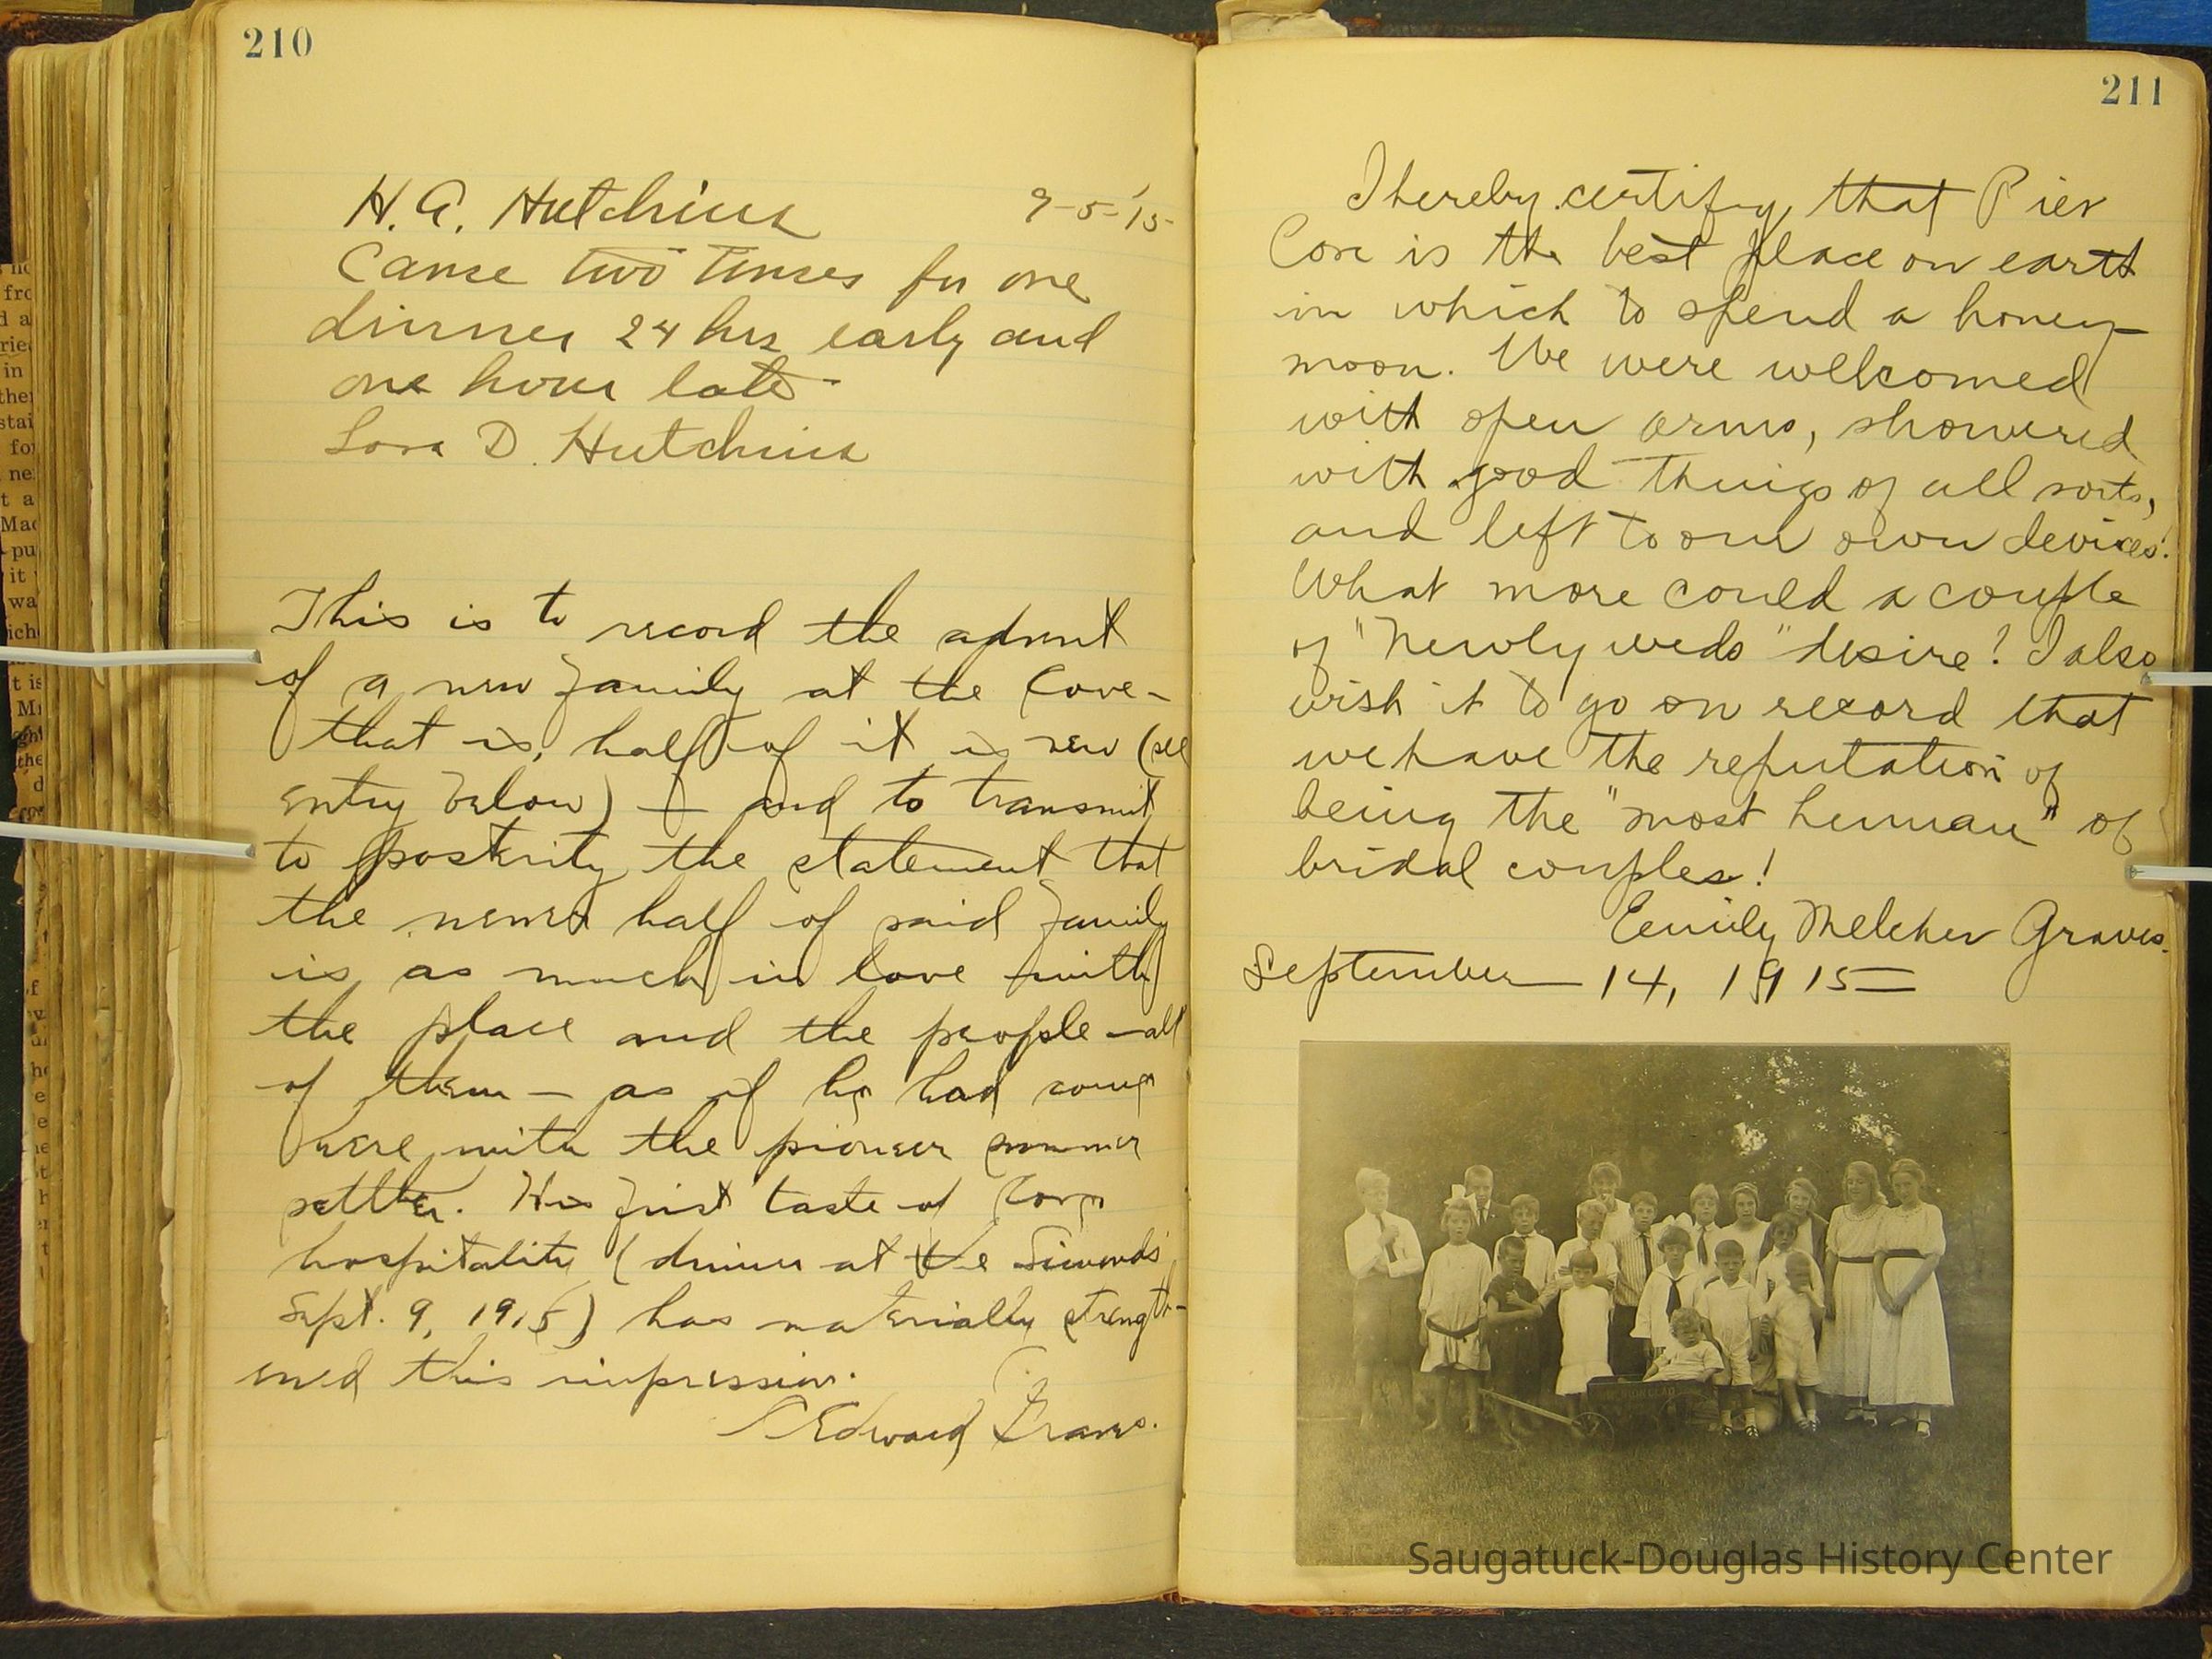 210
H. A. Hutchins 9-5-'15-
Came two times for one
dinner 24 hrs early and
one hour late
Lora D. Hutchins
This is to record the advent
of a new family at the Cove -
that is, half of it is new (see
entry below) - and to transmit
to posterity the statement that
the newer half of said family
is as much in love with
the place and the people - all
of them - as if he had come
here with the pioneer summer
settler. His first taste of Cove
hospitality (dinner at the Simonds'
Sept. 9, 1915) has materially strength-
ened this impression.
Edward Graves.
211
I hereby certify that Pier
Cove is the best place on earth
in which to spend a honey-
moon. We were wellcomed
with open arms, showered
with good things of all sorts,
and left to our own devices!
What more could a couple
of "Newly weds" desire? I also
wish it to go on record that
we have the reputation of
being the "most human" of
bridal couples!
Emily Melcher Graves.
September 14, 1915
Saugatuck-Douglas History Center